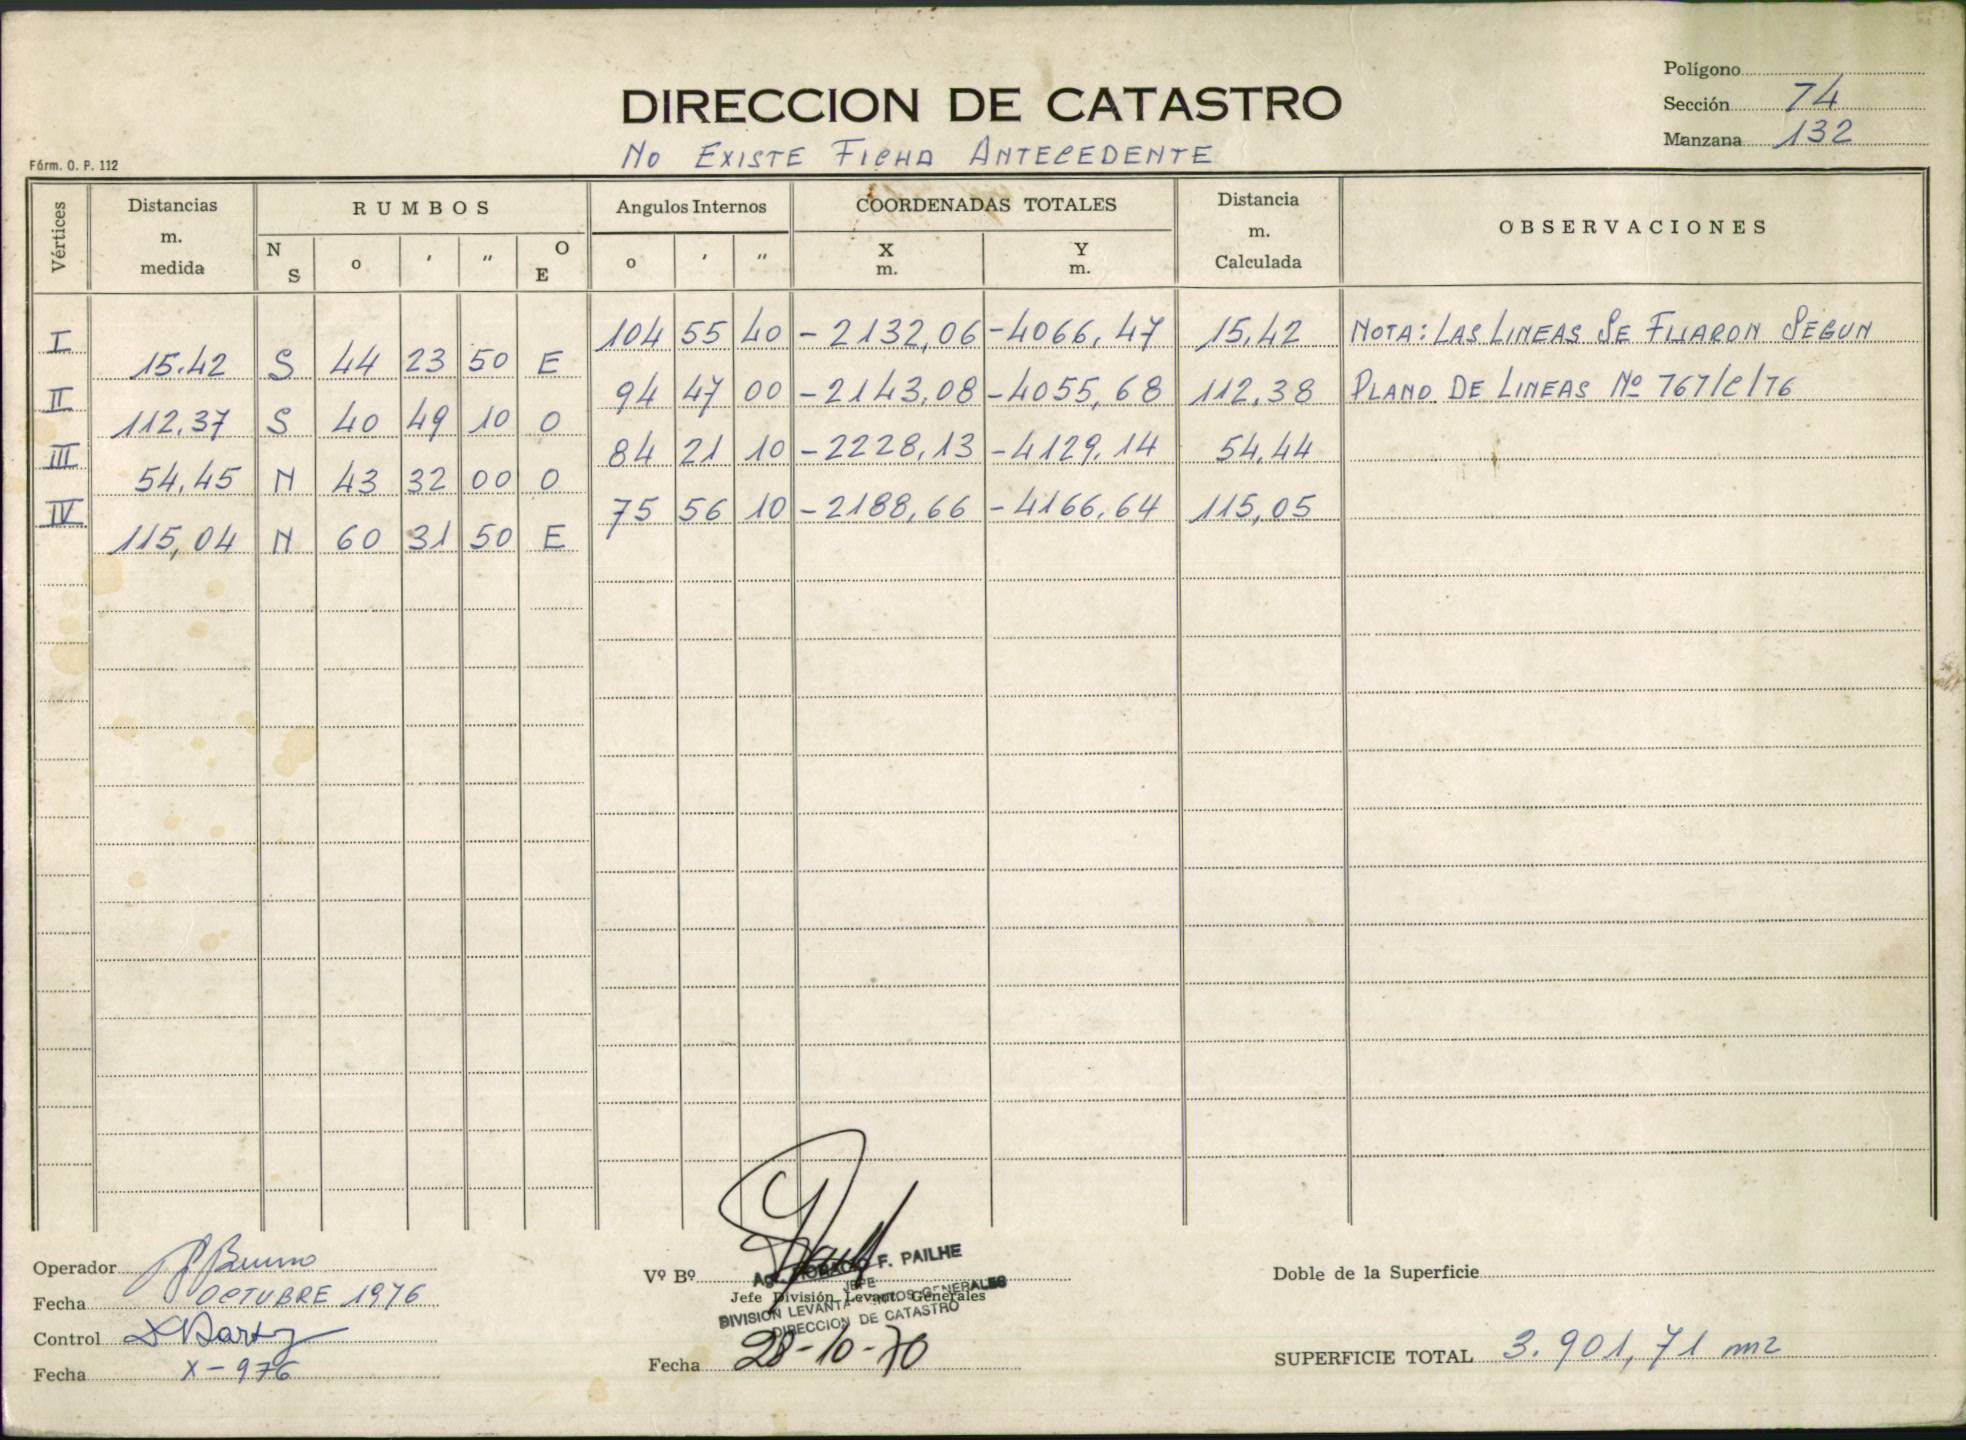 Polígono
DIRECCION DE CATASTRO
Sección 74
Manzana 132
No EXISTE FICHA ANTECEDENTE
Fórm. O. P. 112
Vértices Distancias m. medida RUMBOS Angulos Internos COORDENADAS TOTALES Distancia m. Calculada OBSERVACIONES
N S o ' " O E o ' " X m. Y m.
I 104 55 40 -2132,06 -4066,47 15,42 NOTA: LAS LINEAS SE FIJARON SEGUN
15.42 S 44 23 50 E
II 94 47 00 -2143,08 -4055,68 112,38 PLANO DE LINEAS Nº 767/C/76
112,37 S 40 49 10 O
III 84 21 10 -2228,13 -4129,14 54,44
54,45 N 43 32 00 O
IV 75 56 10 -2188,66 -4166,64 115,05
115,04 N 60 31 50 E
Operador Bruno
Fecha OCTUBRE 1976
Control
Fecha X-976
Vº Bº F. PAILHE
JEFE
Jefe División Levant. Generales
DIVISION GENERALES
DIRECCION DE CATASTRO
Fecha 28-10-70
Doble de la Superficie
SUPERFICIE TOTAL 3.901,71 m2